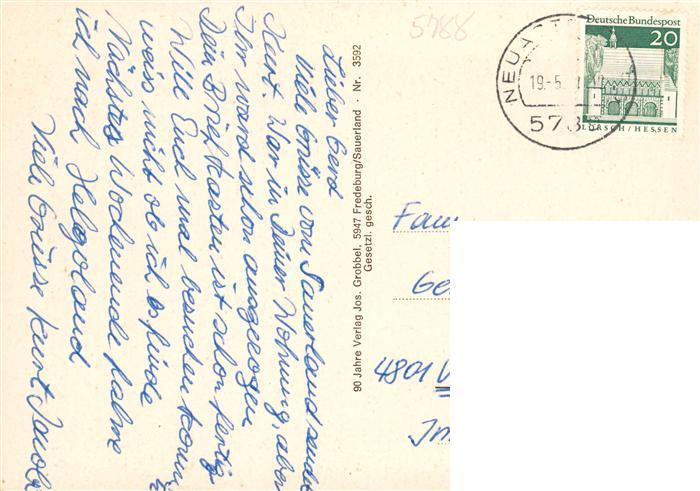 Lieber Gerd
Viele Grüsse vom Sauerland sendet
Kurt. War in Deiner Wohnung, aber
Ihr ward schon ausgezogen
Dein Briefkasten ist schon fertig
Will Euch mal besuchen komm
weiss nicht ob ich es finde
Nächstes Wochenende fahre
ich nach Helgoland
Viele Grüsse Kurt
90 Jahre Verlag Jos. Grobbel, 5947 Fredeburg/Sauerland · Nr. 3592
Gesetzl. gesch.
5788
NEUAST
19.-5.
578
Deutsche Bundespost
20
LORSCH/HESSEN
Fam
Ge
4801
Im